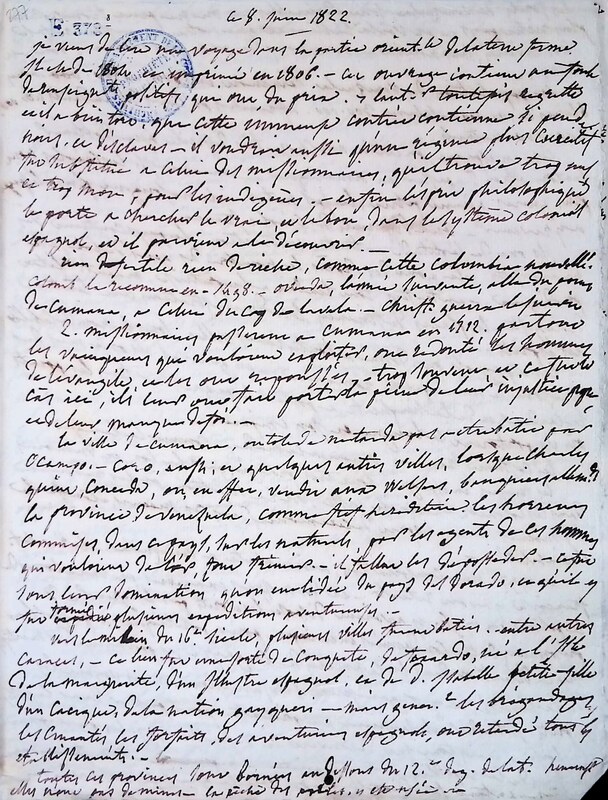 E 378
ce 8. juin 1822.
je viens de lire un voyage dans la partie orient.le de la terre ferme
fait de 1804 et imprimé en 1806. - cet ouvrage contient une foule
de positifs, qui ont du prix.
et il a bien tort, que cette immense contrée contienne si peu de
noirs, et d'esclaves - il voudrait aussi qu'un régime plus coercitif
fut substitué à celui des missionnaires, qu'il trouve trop
et trop mou, pour les indigènes. - enfin l'esprit philosophique
le porte à chercher le vrai, et le bon, dans le système colonial
espagnol, et il parvient à le découvrir. -
rien de fertile rien de riche, comme cette Colombie nouvelle.
colomb la reconnut en 1498. - l'année suivante, alla du
de Cumana, à celui du Cap de la vela. - Christ. guerra le suivit
2. missionnaires passèrent à Cumana en 1512. partout
les vainqueurs que voulaient exploiter, ont redouté les hommes
de l'évangile, et les ont repoussés, - trop souvent et, en
cas ici, ils leur ont fait porter la peine de leur injustice
et de leur manque de foi. -
la ville de Cumana, ou tolede ne tarda pas à être batie par
Ocampo. - Coro, aussi, et quelques autres villes, lorsque Charles
quint, conceda, ou, en effet, vendit aux Welsers, banquiers allem.ds
la province de venezuela, comme fief hereditaire les horreurs
commises, dans ce pays, sur les naturels, par les agents de ces hommes
qui voulaient de l'or, pour - il fallut les déposséder. - ce fut
sous leur domination, du pays del Dorado, et qu'il y
fut formé plusieurs expéditions aventureuses. -
vers le milieu du 16e siècle, plusieurs villes furent baties - entre autres
Caracas, - ce lieu fut une sorte de conquête, de faxardo, né à l'Isle
de la marguerite, d'un illustre espagnol, et de D. Isabelle petite-fille
d'un Cacique, de la nation gayqueri - mais gener.t les brigandages
les cruautés, les forfaits, des aventuriers espagnols, ont retardé tous les
établissements. -
toutes ces provinces sont bornées au dessous du 12.e deg. de lat.
elles n'ont pas de mines - la pêche des perles, y est